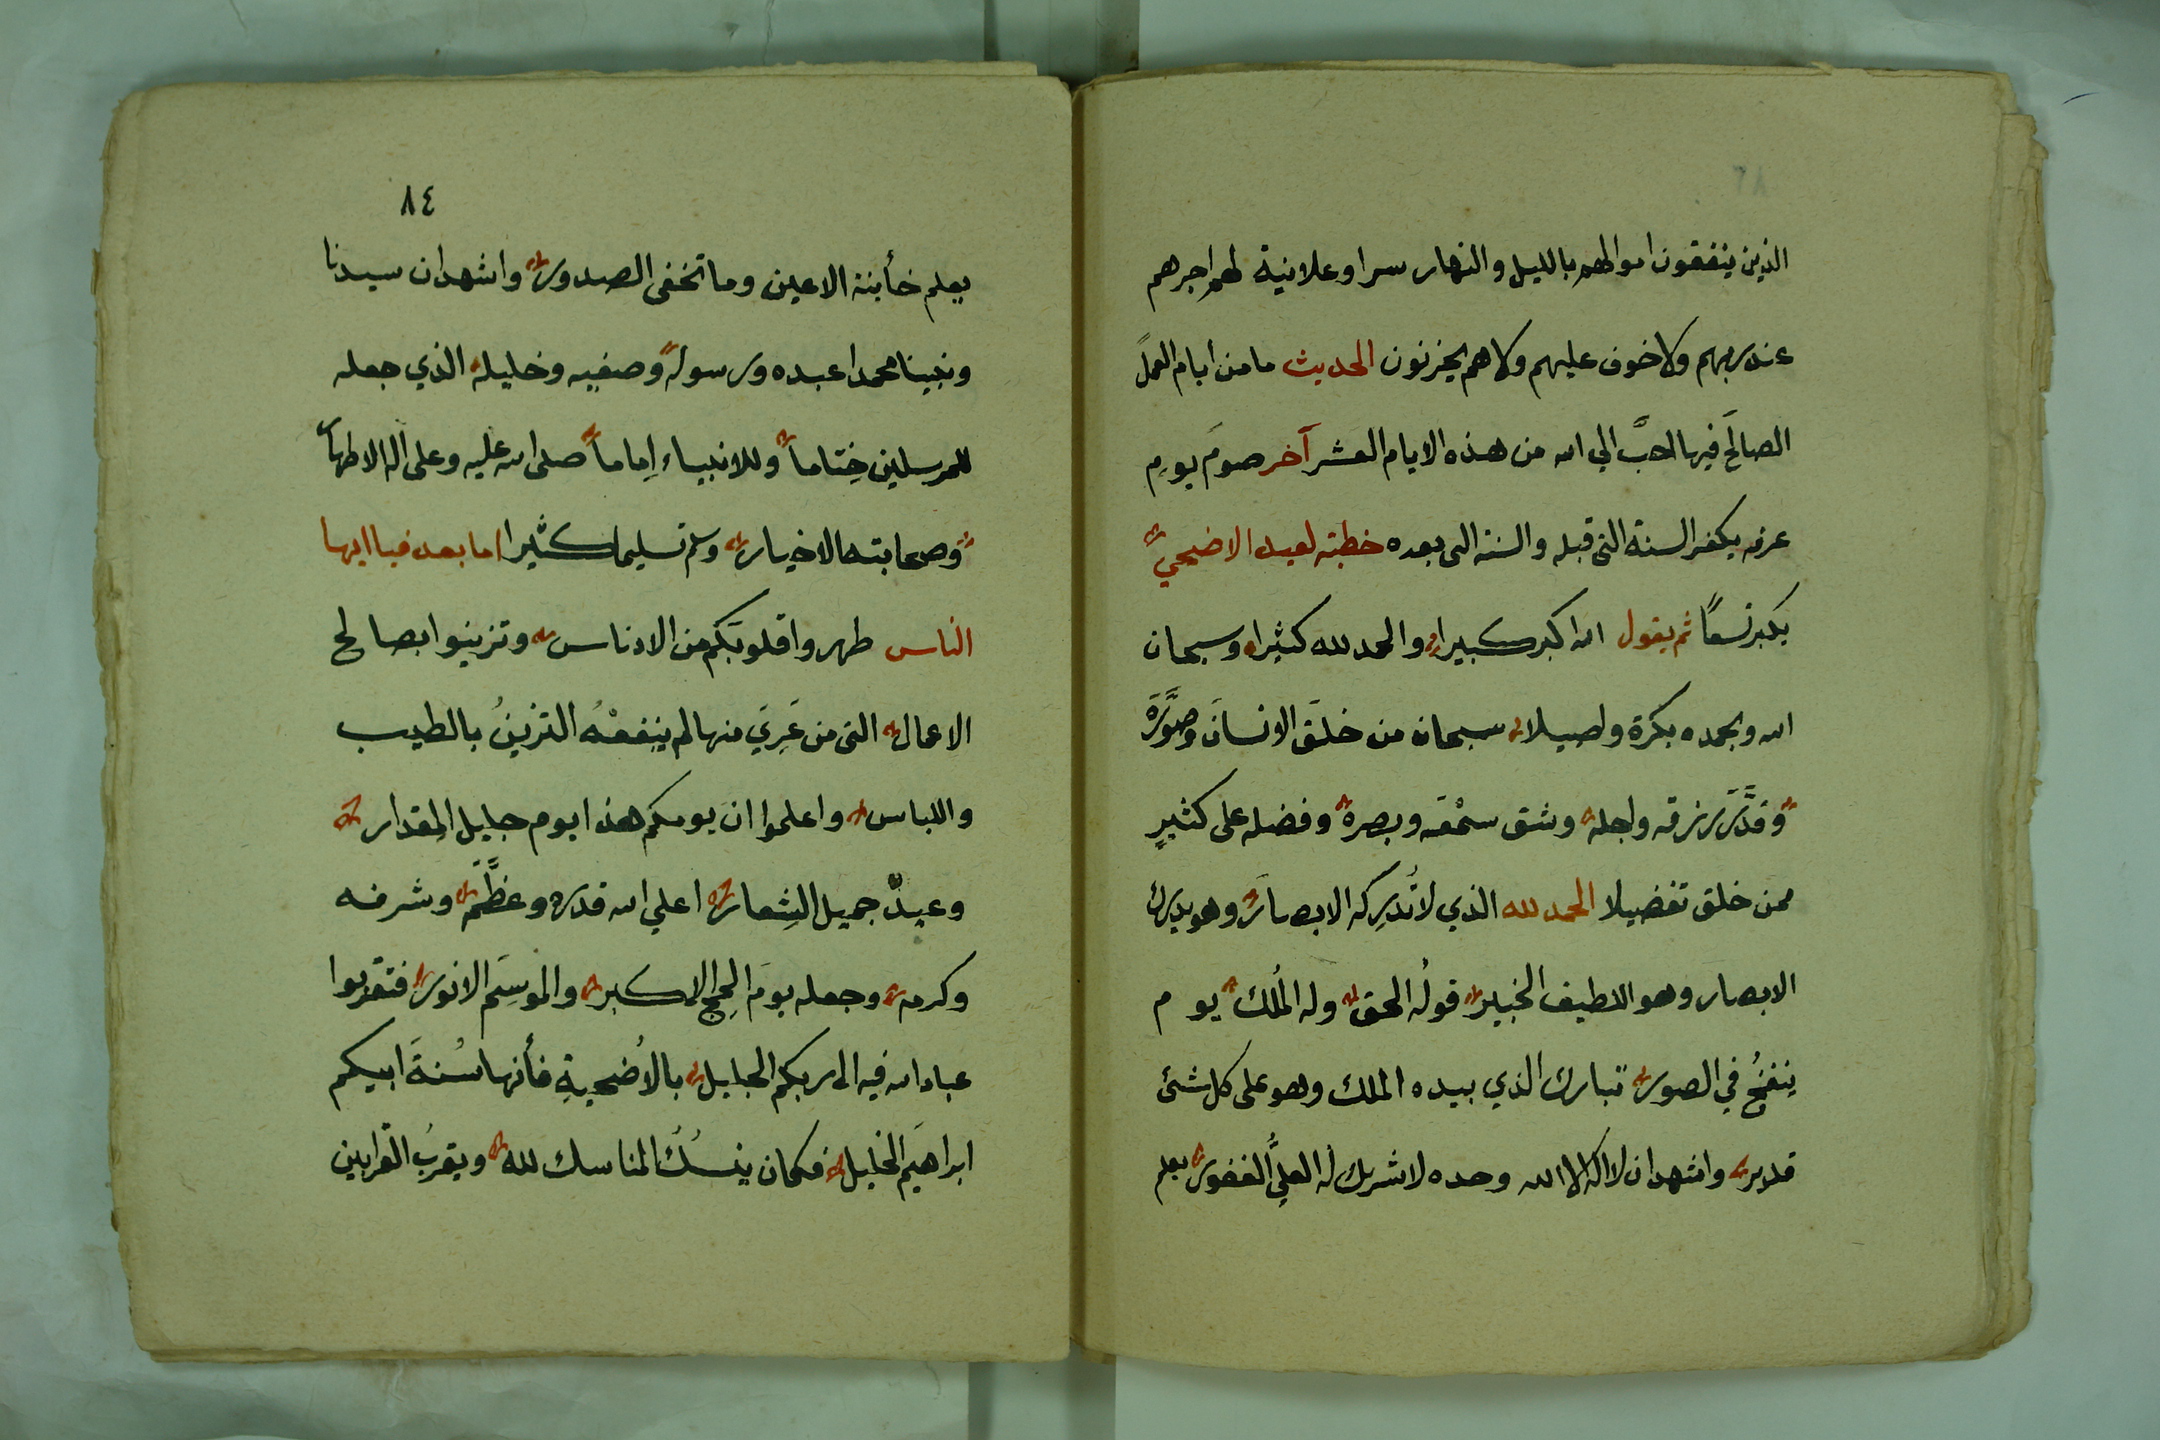 الذين ينفقون اموالهم بالليل والنهار سرا وعلانية لهم اجرهم
عند ربهم ولا خوف عليهم ولا هم يحزنون الحديث ما من أيام العمل
الصالح فيها احبَّ الي الله من هذه الايام العشر آخر صومَ يومِ
عرفه يكفر السنة التي قبله والسنة التى بعده خطبته لعيد الاضحي
يكبر تسعًا ثم يقول الله اكبر كبيرا والحمد لله كثيرا وسبحان
الله وبحمده بكرة واصيلا سبحان من خلَق الانسانَ وصوَّرَه
وقدَّرَ رزقه واجله وشق سمْعَه وبصره وفضله على كثيرٍ
ممن خلق تفضيلا الحمد لله الذي لا تُدرِكه الابصارُ وهو يدرك
الابصار وهو اللطيف الخبير قولُه الحق وله المُلك يوم
يُنفخُ في الصور تبارك الذي بيده الملك وهو على كل شئ
قدير واشهد ان لا اله الا الله وحده لا شريك له العليُّ الغفور يعلم
٨٤
يعلم خأينة الاعين وما تخفى الصدور واشهد ان سيدنا
ونبينا محمدا عبده ورسوله وصفيه وخليله الذي جعله
للمرسلين خِتاماً وللانبياء اِماماً صلى الله عليه وعلى اله الاطهار
وصحابته الاخيار وسلم تسليما كثيرا اما بعد فيا ايها
الناس طهروا قلوبَكم من الادناس وتزينوا بصالح
الاعمال التى من عَرِيَ منها لم ينفعْهُ التزينُ بالطيب
واللباس واعلموا ان يومكم هذا يوم جليل المِقدار
وعيدٌ جميل الشِعار اعلي الله قدره وعظَّمَه وشرفه
وكرمه وجعله يومَ الحِج الاكبر والموسِم الانور فتقربوا
عباد الله فيه الى ربكم الجليل بالاُضحيةِ فأنها سُنةَ ابيكم
ابراهيم الخليل فكان ينسُكُ المناسك لله ويقربُ القرابين